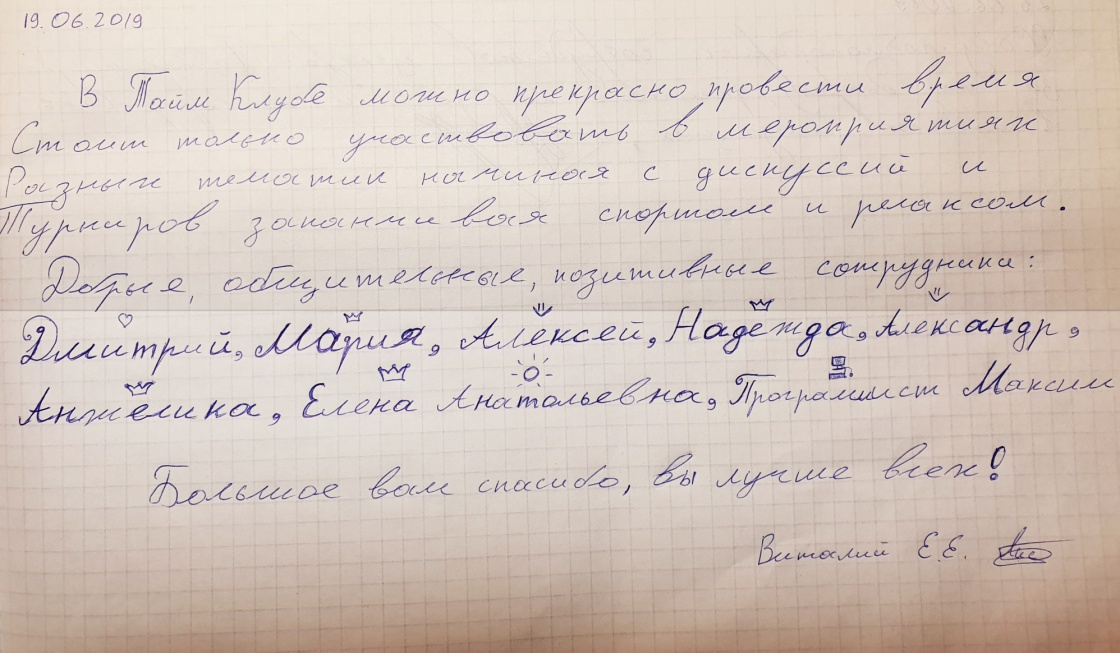 19.06.2019
В Тайм Клубе можно прекрасно провести время
Стоит только участвовать в мероприятиях
Разных тематик начиная с дискуссий и
Турниров заканчивая спортом и релаксом.
Добрые, общительные, позитивные сотрудники:
Дмитрий, Мария, Алексей, Надежда, Александр,
Анжелика, Елена Анатольевна, Программист Максим
Большое вам спасибо, вы лучше всех!
Виталий Е.Е.